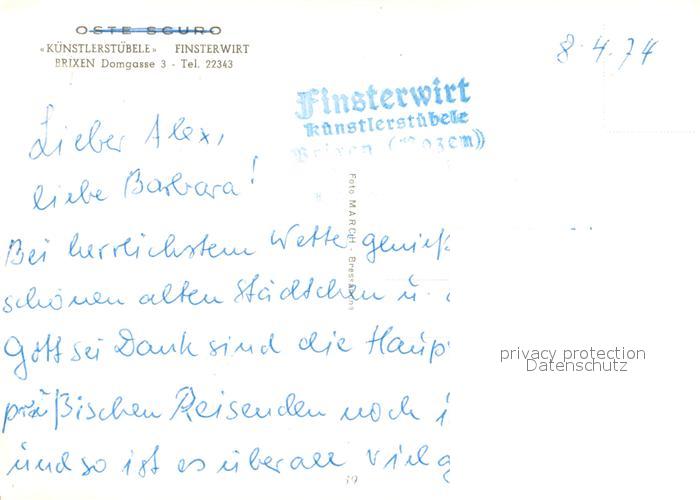 OSTE SCURO
«KÜNSTLERSTÜBELE» FINSTERWIRT
BRIXEN Domgasse 3 - Tel. 22343
8.4.74
Finsterwirt
Künstlerstübele
Brixen (Bozen)
Lieber Alex,
liebe Barbara!
Foto MARCH - Bressanone
Bei herrlichstem Wetter genieß
schönen alten Städtchen u.
Gott sei Dank sind die Haup
preußischen Reisenden noch i
und so ist es überall viel g
privacy protection
Datenschutz